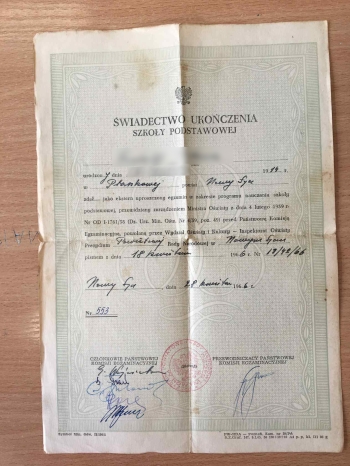 ŚWIADECTWO UKOŃCZENIA
SZKOŁY PODSTAWOWEJ
urodzony dnia
w Ptaszkowej powiat Nowy Sącz
jako ekstern uproszczony egzamin w zakresie programu nauczania szkoły
podstawowej, przewidziany zarządzeniem Ministra Oświaty z dnia 4 lutego 1959 r.
przed Państwową Komisją
Egzaminacyjną, powołaną przez Wydział Oświaty i Kultury — Inspektorat Oświaty
Prezydium Powiatowej Rady Narodowej w Nowym Sączu
pismem z dnia 18 kwietnia 1966 Nr
Nowy Sącz dnia 28 kwietnia 1966 r.
Nr. 553
CZŁONKOWIE PAŃSTWOWEJ
KOMISJI EGZAMINACYJNEJ
PRZEWODNICZĄCY PAŃSTWOWEJ
KOMISJI EGZAMINACYJNEJ